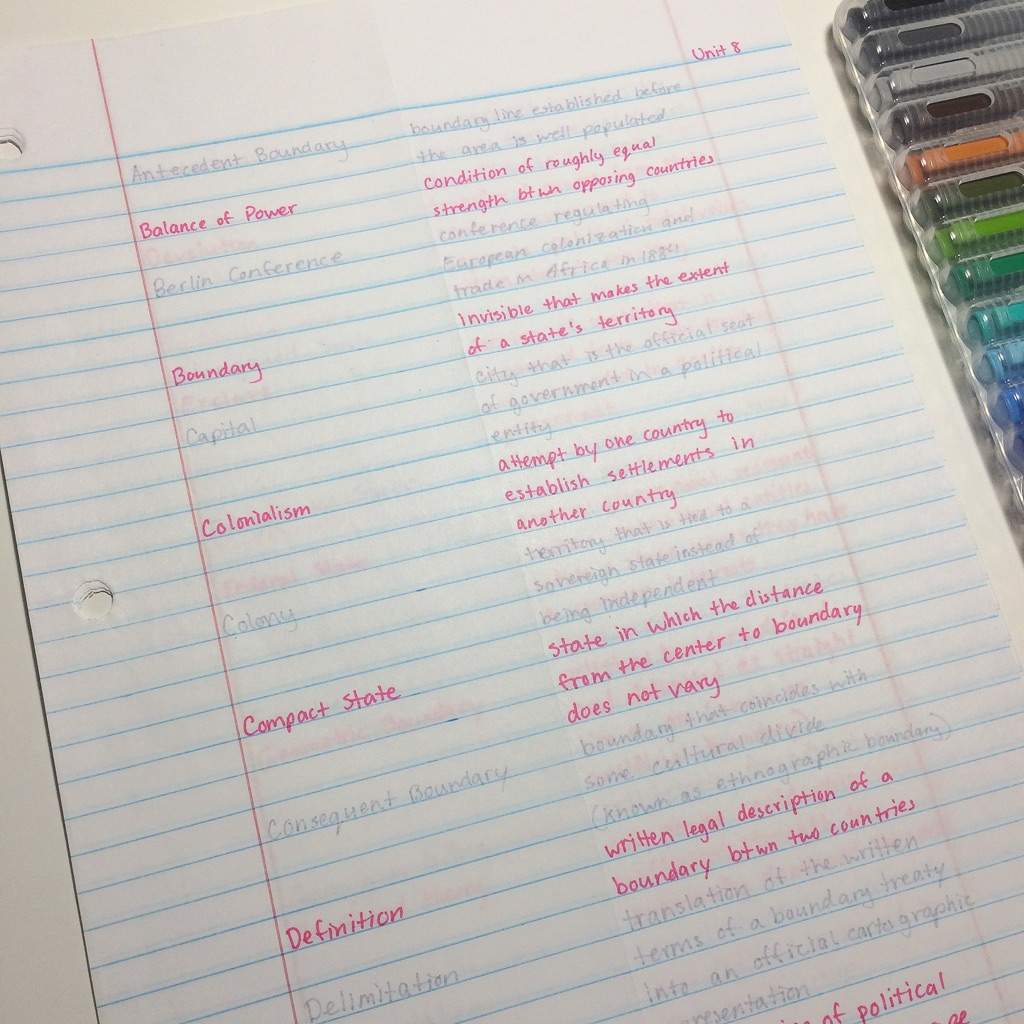 Unit 8
Antecedent Boundary
boundary line established before
the area is well populated
Balance of Power
condition of roughly equal
strength btwn opposing countries
Berlin Conference
conference regulating
European colonization and
trade in Africa in 1884
Boundary
invisible that makes the extent
of a state's territory
Capital
city that is the official seat
of government in a political
entity
Colonialism
attempt by one country to
establish settlements in
another country
Colony
territory that is tied to a
sovereign state instead of
being independent
Compact State
state in which the distance
from the center to boundary
does not vary
Consequent Boundary
boundary that coincides with
some cultural divide
(known as ethnographic boundary)
Definition
written legal description of a
boundary btwn two countries
Delimitation
translation of the written
terms of a boundary treaty
into an official cartographic
of political